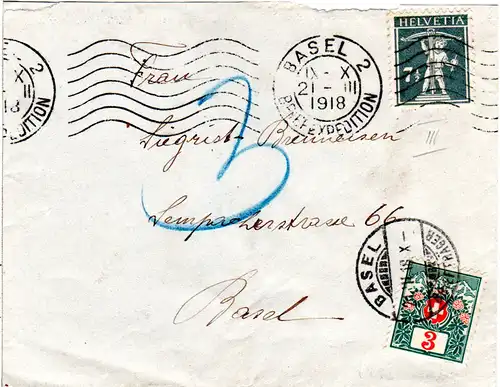 BASEL 2
IX - X
21 - III
1918
BRIEFEXPEDITION
HELVETIA
7½
2
X
III
18
Frau
3
Siegrist-Brenneisen
Sempacherstrasse 66
Basel
BASEL
3